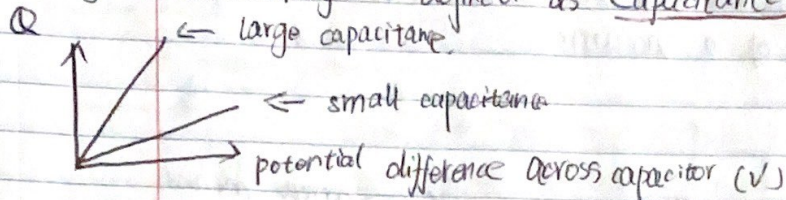 as Capacitance
Q
← large capacitane.
← small capacitance
potential difference across capacitor (V)